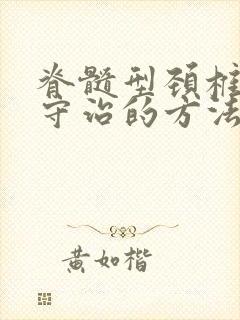 脊髓型颈椎
守治的方法
黄如楷